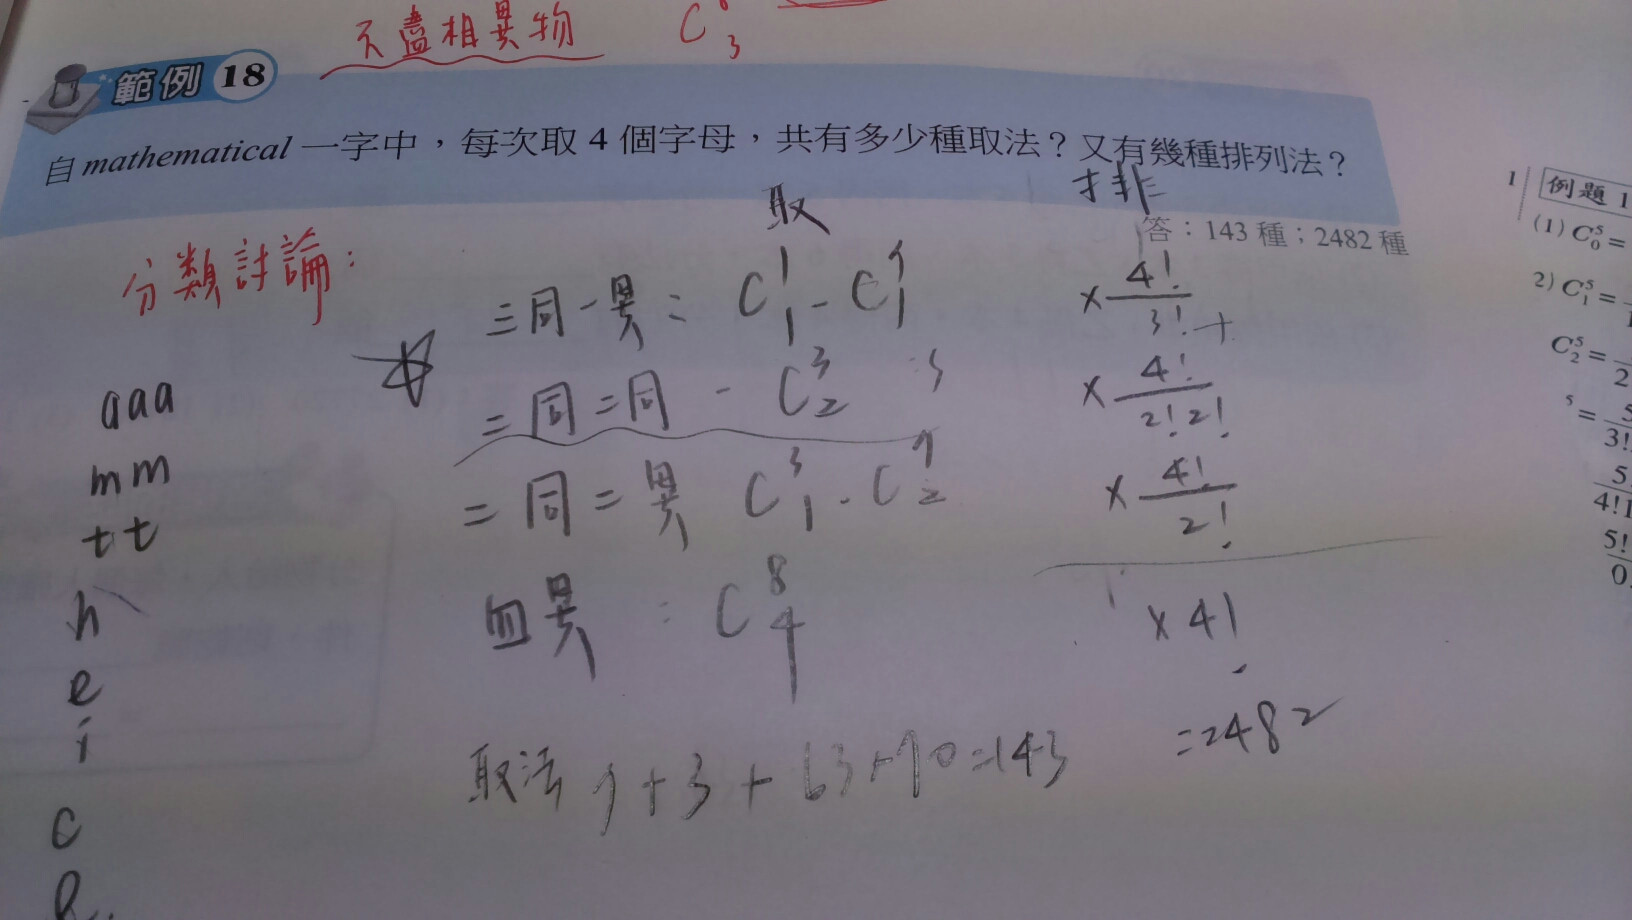 不盡相異物 C₃
範例 18
自 mathematical 一字中，每次取 4 個字母，共有多少種取法？又有幾種排列法？
取 排
答：143 種；2482 種
分類討論：
aaa
mm
tt
h
e
i
c
l
三同一異： C¹₁ - C⁷₁ × 4!/3! +
二同二同 - C³₂ 3 × 4!/2!2!
二同二異 C³₁ - C⁷₂ × 4!/2!
四異 : C⁸₄ × 4!
取法 7+3+63+70=143 =2482
1 例題 1
(1) C⁵₀ =
2) C⁵₁ =
C⁵₂ =